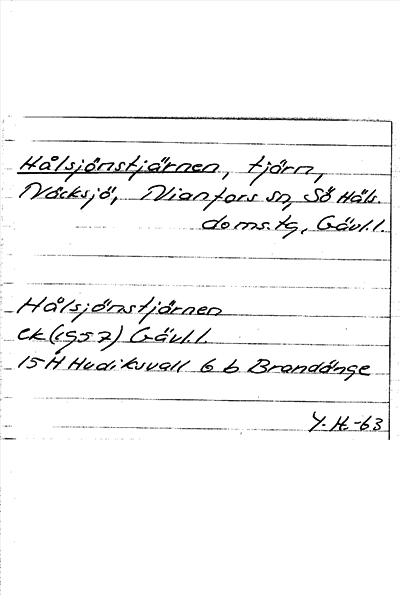 Hålsjönstjärnen, tjärn,
Näcksjö, Nianfors sn, Sö Häls.
doms.tg, Gävl.l.
Hålsjönstjärnen
ek (1957) Gävl.l.
15 H Hudiksvall 6 b Brandänge
Y.H.-63